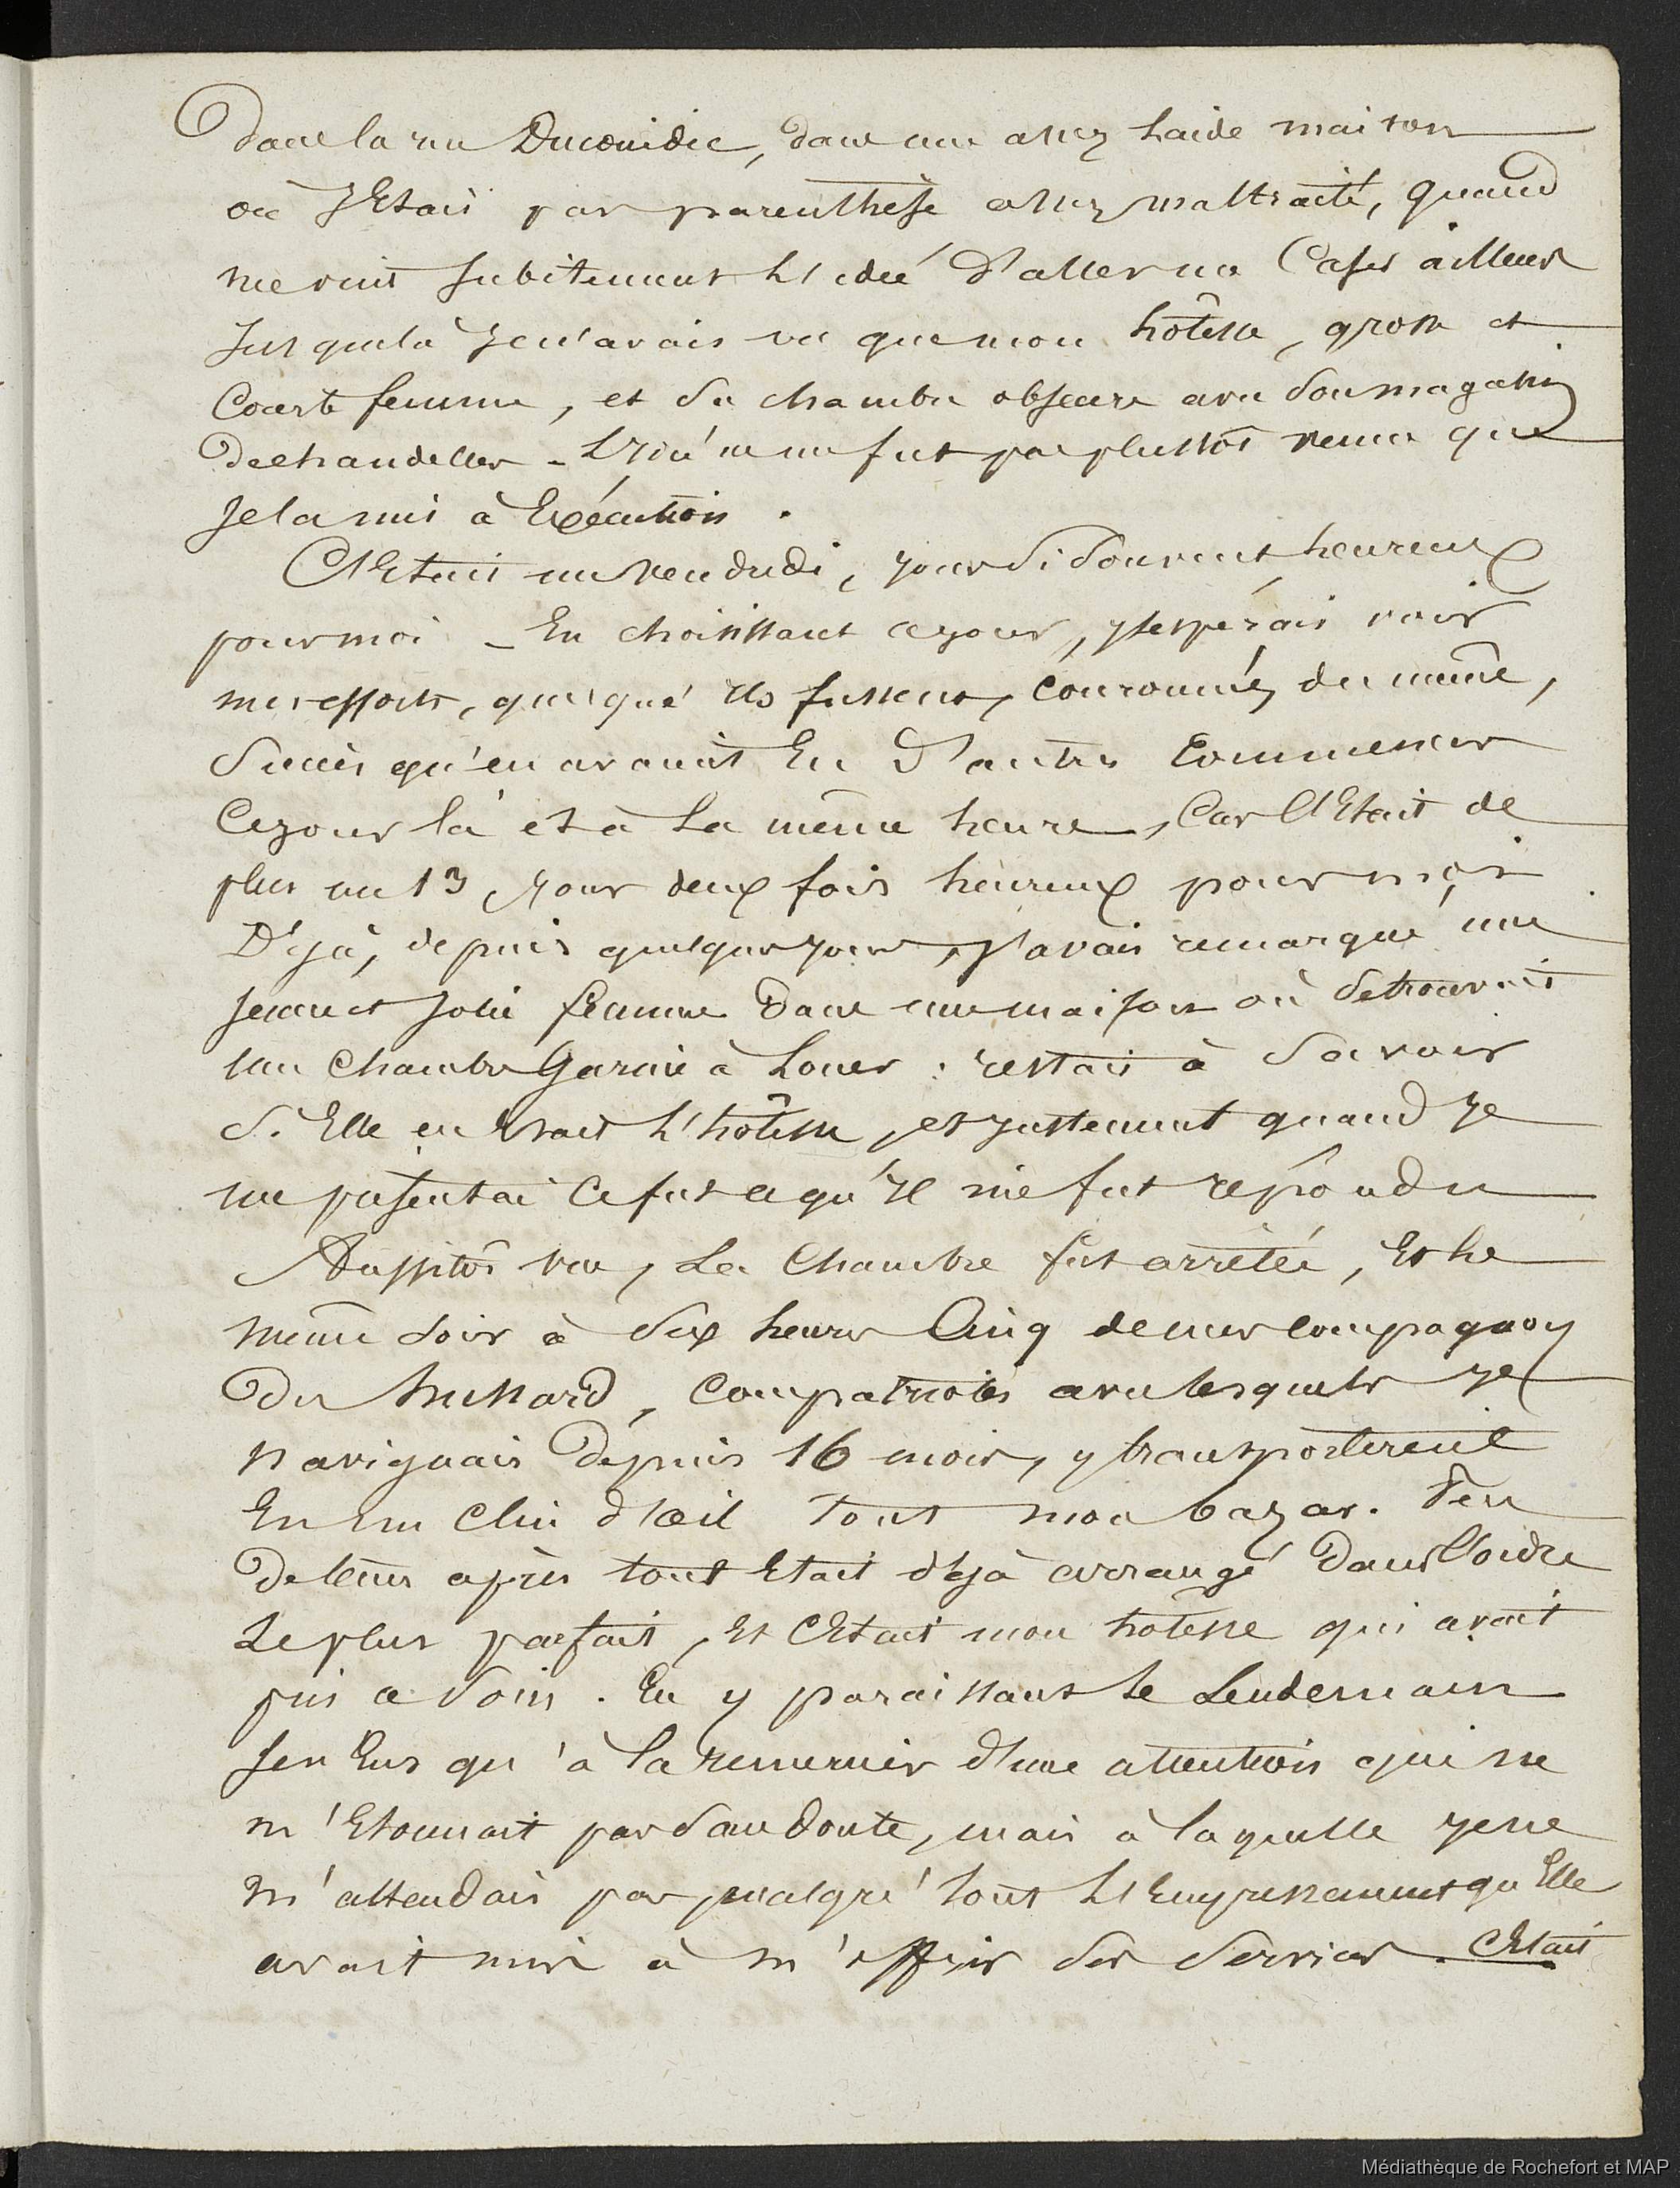 dans la rue Ducouëdic, dans une assez laide maison
où j'Etais par parenthèse assez maltraité, quand
me vint subitement L'idée d'aller me Caser ailleurs
Jusque là je n'avais vu que mon hôtesse, grosse et
Courte femme, et sa chambre obscure avec son magasin
de chandelles - L'idée ne me fut pas plustôt venue que
je la mis à Exécution.
C'Etait un vendredi, jour si souvent heureux
pour moi - En choisissant ce jour, j'espérais voir
mes efforts, quelqué ils fussent, Couronnés du même,
Succès qu'en avaient Eu d'autres Commencés
Ce jour là et à La même heure, Car C'Etait de
plus un 13, jour deux fois heureux pour moi
Déjà, depuis quelques jours, j'avais remarqué une
jeune et Jolie femme dans une maison où se trouvait
une Chambre Garnie à Louer : restait à Savoir
Si Elle en Etait L'hôtesse, et justement quand je
me présentai Ce fut ce qu'il me fut répondu
Aussitôt vue, La Chambre fut arrêtée, Et Le
même Soir à Six heures Cinq de mes compagnons
du hussard, Compatriotes avec lesquels je
naviguais depuis 16 mois, y transportèrent
En un Clin d'œil Tout mon bazar. Peu
de tems après tout Etait déjà arrangé dans l'ordre
Le plus parfait, Et C'Etait mon hôtesse qui avait
pris ce Soin. En y paraissant Le Lendemain
Je n'Eus qu'à La remercier d'une attention qui ne
m'Etonnait pas Sans doute, mais à laquelle je ne
m'attendais pas, malgré tout L'Empressement qu'Elle
avait mis à m'offrir Ses Services. C'Etait